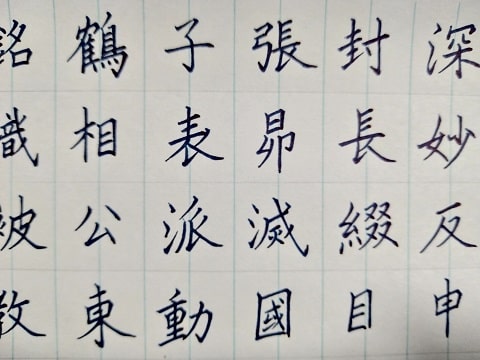 深妙反申
封長綴目
張昴滅國
子表派動
鶴相公東
銘被教